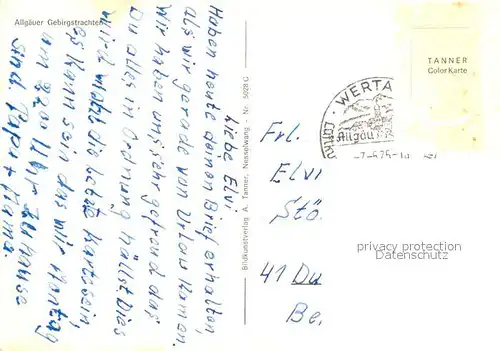 Allgäuer Gebirgstrachten
Liebe Elvi
Haben heute deinen Brief erhalten
als wir gerade von Urlaub kamen.
Wir haben uns sehr gefreut das
Du alles in Ordnung hällst Dies
wird wohl die letzte Karte sein,
es kann sein das wir Montag
um 2200 Uhr zu hause
sind Papa + Mama.
Bildkunstverlag A. Tanner, Nesselwang - Nr. 5028 G
TANNER
Color Karte
WERTA
Allgäu
Frl.
Elvi
Stö.
41 Du
Be.
privacy protection
Datenschutz